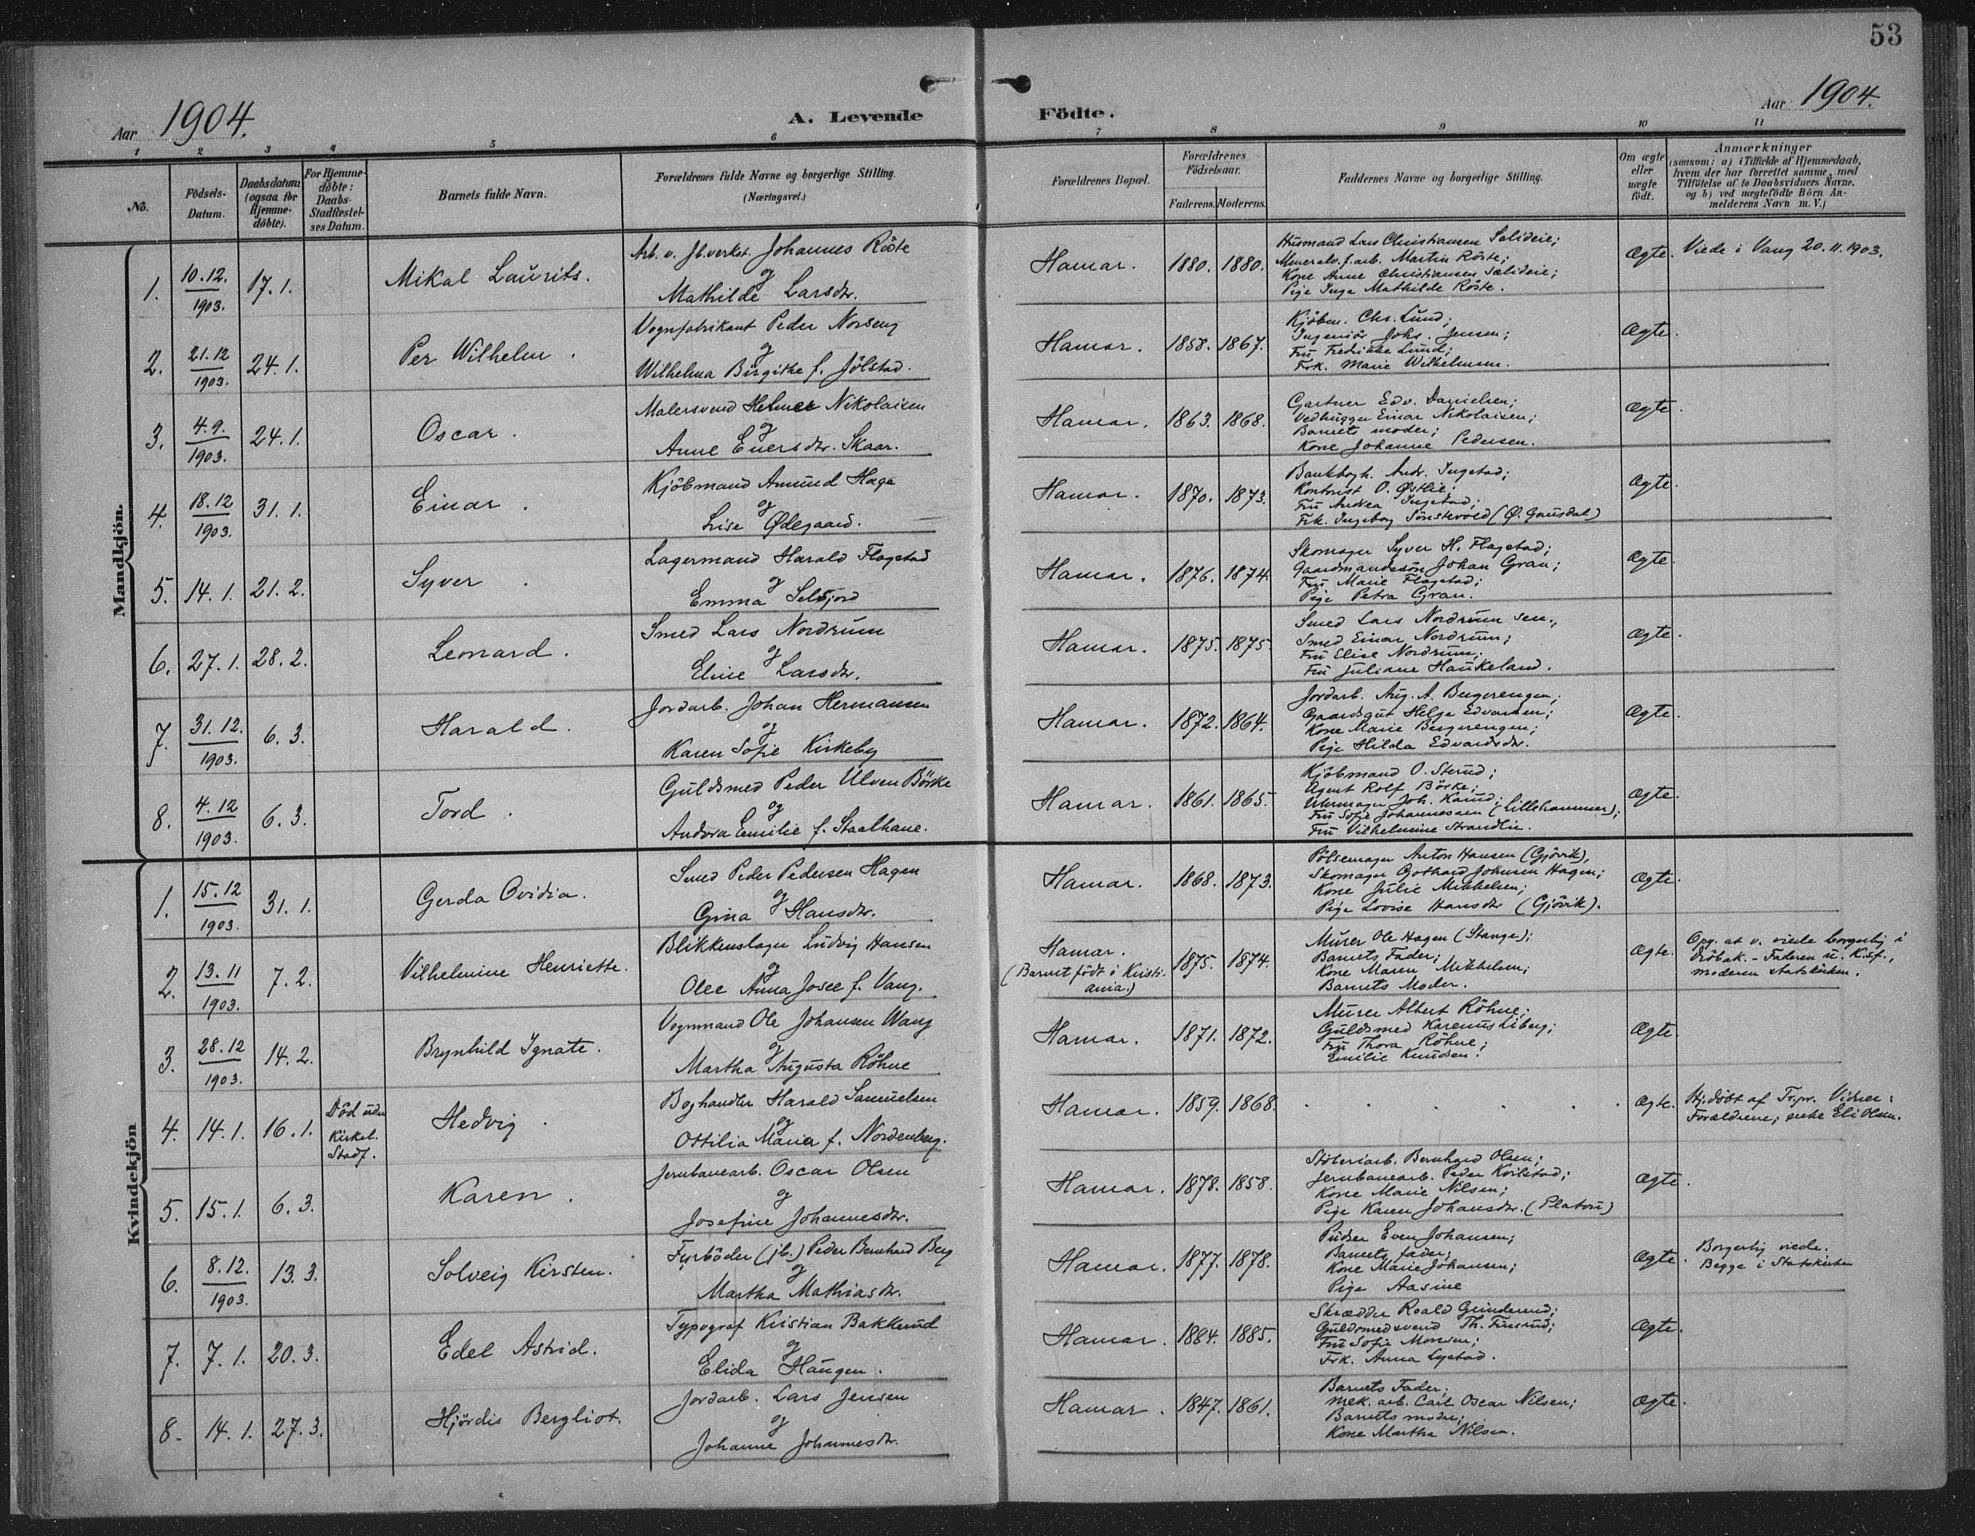 53
Aar 1904.
A. Levende Födte.
Aar 1904.
1 2 3 4 5 6 7 8 9 10 11
No.
Födsels-Datum.
Daabsdatum (ogsaa for Hjemme-døbte).
For Hjemme-døbte: Daabs-Stadfæstel-ses Datum.
Barnets fulde Navn.
Forældrenes fulde Navne og borgerlige Stilling. (Næringsvei.)
Forældrenes Bopæl.
Forældrenes Födselsaar.
Faderens. Moderens.
Faddernes Navne og borgerlige Stilling.
Om ægte eller uægte født.
Anmærkninger
(saasom: a) i Tilfælde af Hjemmedaab, hvem der har forrettet samme, med Tilföielse af to Daabsvidners Navne, og b) ved uægtefödte Börn An-melderens Navn m. V.)
Mandkjön.
1. 10.12. 1903. 17.1. Mikal Laurits.
Arb. v. Jb.verkst. Johannes Röste
og
Mathilde Larsdtr.
Hamar. 1880. 1880.
Husmand Lars Christiansen Solideie;
Mineralv.f.arb. Martin Röste;
Kone Anne Christiansen Solideie;
Pige Inga Mathilde Röste.
Ægte. Viede i Vang 20.11.1903.
2. 21.12 1903. 24.1. Per Wilhelm.
Vognfabrikant Peder Norseng
og
Wilhelma Birgitke f. Jölstad.
Hamar. 1858. 1867.
Kjöbm. Chr. Lund;
Ingeniör Johs. Jensen;
Fru Fredrikke Lund;
Frk. Marie Wilhelmsen.
Ægte.
3. 4.9. 1903. 24.1. Oscar.
Malersvend Helmer Nikolaisen
og
Anne Eversdtr. Skaar.
Hamar. 1863. 1868.
Gartner Edv. Danielsen;
Vedhugger Einar Nikolaisen;
Barnets moder;
Kone Johanne Pedersen.
Ægte.
4. 18.12 1903. 31.1. Einar.
Kjöbmand Amund Haga
og
Lise Ødegaard.
Hamar. 1870. 1873.
Bankbogh. Andr. Ingstad;
Kontorist O. Østlie;
Fru Andrea Ingstad;
Frk. Ingeborg Sönstevold (Ø. Gausdal)
Ægte.
5. 14.1. 21.2. Syver.
Lagermand Harald Flagstad
og
Emma Selfjord
Hamar. 1876. 1874.
Skomager Syver H. Flagstad;
Gaardmandssön Johan Gran;
Fru Marie Flagstad;
Pige Petra Gran.
Ægte.
6. 27.1. 28.2. Leonard.
Smed Lars Nordrum
og
Eline Larsdtr.
Hamar. 1875. 1875.
Smed Lars Nordrum sen.,
Smed Einar Nordrum;
Fru Elise Nordrum;
Fru Juliane Haukeland.
Ægte.
7. 31.12. 1903. 6.3. Harald.
Jordarb. Johan Hermansen
og
Karen Sofie Kirkeby
Hamar. 1872. 1864.
Jordarb. Aug. A. Bergerengen;
Gaardsgut Helge Edvardsen;
Kone Marie Bergerengen;
Pige Hilda Edvardsdr.
Ægte.
8. 4.12 1903. 6.3. Tord.
Guldsmed Peder Ulven Börke
og
Andora Emilie f. Staalhane.
Hamar. 1861. 1865.
Kjöbmand O. Sterud;
Agent Rolf Börke;
Uhrmager Joh. Knud;
Fru Sofie Johannessen (Lillehammer);
Fru Vilhelmine Strandlie.
Ægte.
Kvindekjön
1. 15.12 1903. 31.1. Gerda Ovidia.
Smed Peder Pedersen Hagen
og
Gina Hansdtr.
Hamar. 1868. 1873.
Pölsemager Anton Hansen (Gjövik),
Skomager Gothard Johnsen Hagen;
Kone Julie Mikkelsen;
Pige Lovise Hansdtr (Gjövik).
Ægte.
2. 13.11 1903. 7.2. Vilhelmine Henriette.
Blikkenslager Ludvig Hansen
og
Olee Anna Josee f. Vang.
Hamar. (Barnet födt i Kristiania.) 1875. 1874.
Murer Ole Hagen (Stange);
Barnets Fader;
Kone Maren Mikkelsen;
Barnets Moder.
Ægte.
Opg. at v. viede borgerlig i
Dröbak. - Faderen u. K.sf.,
moderen statskirken.
3. 28.12 1903. 14.2. Brynhild Ignate.
Vognmand Ole Johansen Wang
og
Martha Augusta Röhne
Hamar. 1871. 1872.
Murer Albert Röhne;
Guldsmed Karenus Liberg;
Fru Thora Röhne;
Emilie Knudsen.
Ægte.
4. 14.1. 16.1. Död uden Kirkel. Stadf. Hedvig.
Boghandler Harald Samuelsen
og
Ottilia Maria f. Nordenberg.
Hamar. 1859. 1868.
Ægte. Hj.döbt af Frpr. Vidner:
Forældrene;
5. 15.1. 6.3. Karen.
Jernbanearb. Oscar Olsen
og
Josefine Johannesdtr.
Hamar. 1878. 1858.
Stöberiarb. Bernhard Olsen;
Jernbanearb. Peder Kvilstad;
Kone Marie Nilsen;
Pige Karen Johansdtr. (Platou)
Ægte.
6. 8.12. 1903. 13.3. Solveig Kirsten.
Fyrböder (jb.) Peder Bernhard Berg
og
Martha Mathiasdtr.
Hamar. 1877. 1878.
Pudser Even Johansen;
Barnets fader;
Kone Marie Johansen;
Pige Aasine
Ægte. Borgerlig viede.
Begge i Statskirken
7. 7.1. 20.3. Edel Astrid.
Typograf Kristian Bakkerud
og
Elida Haugen.
Hamar. 1884. 1885.
Skrædder Roald Grinderud;
Guldsmedsvend Th. Fusrud;
Fru Sofie Monsen;
Frk. Anna Lystad.
Ægte.
8. 14.1. 27.3. Hjördis Bergliot.
Jordarb. Lars Jensen
og
Johanne Johannesdtr.
Hamar. 1847. 1861.
Barnets Fader;
Mek. arb. Carl Oscar Nilsen;
Barnets moder;
Kone Martha Nilsen.
Ægte.